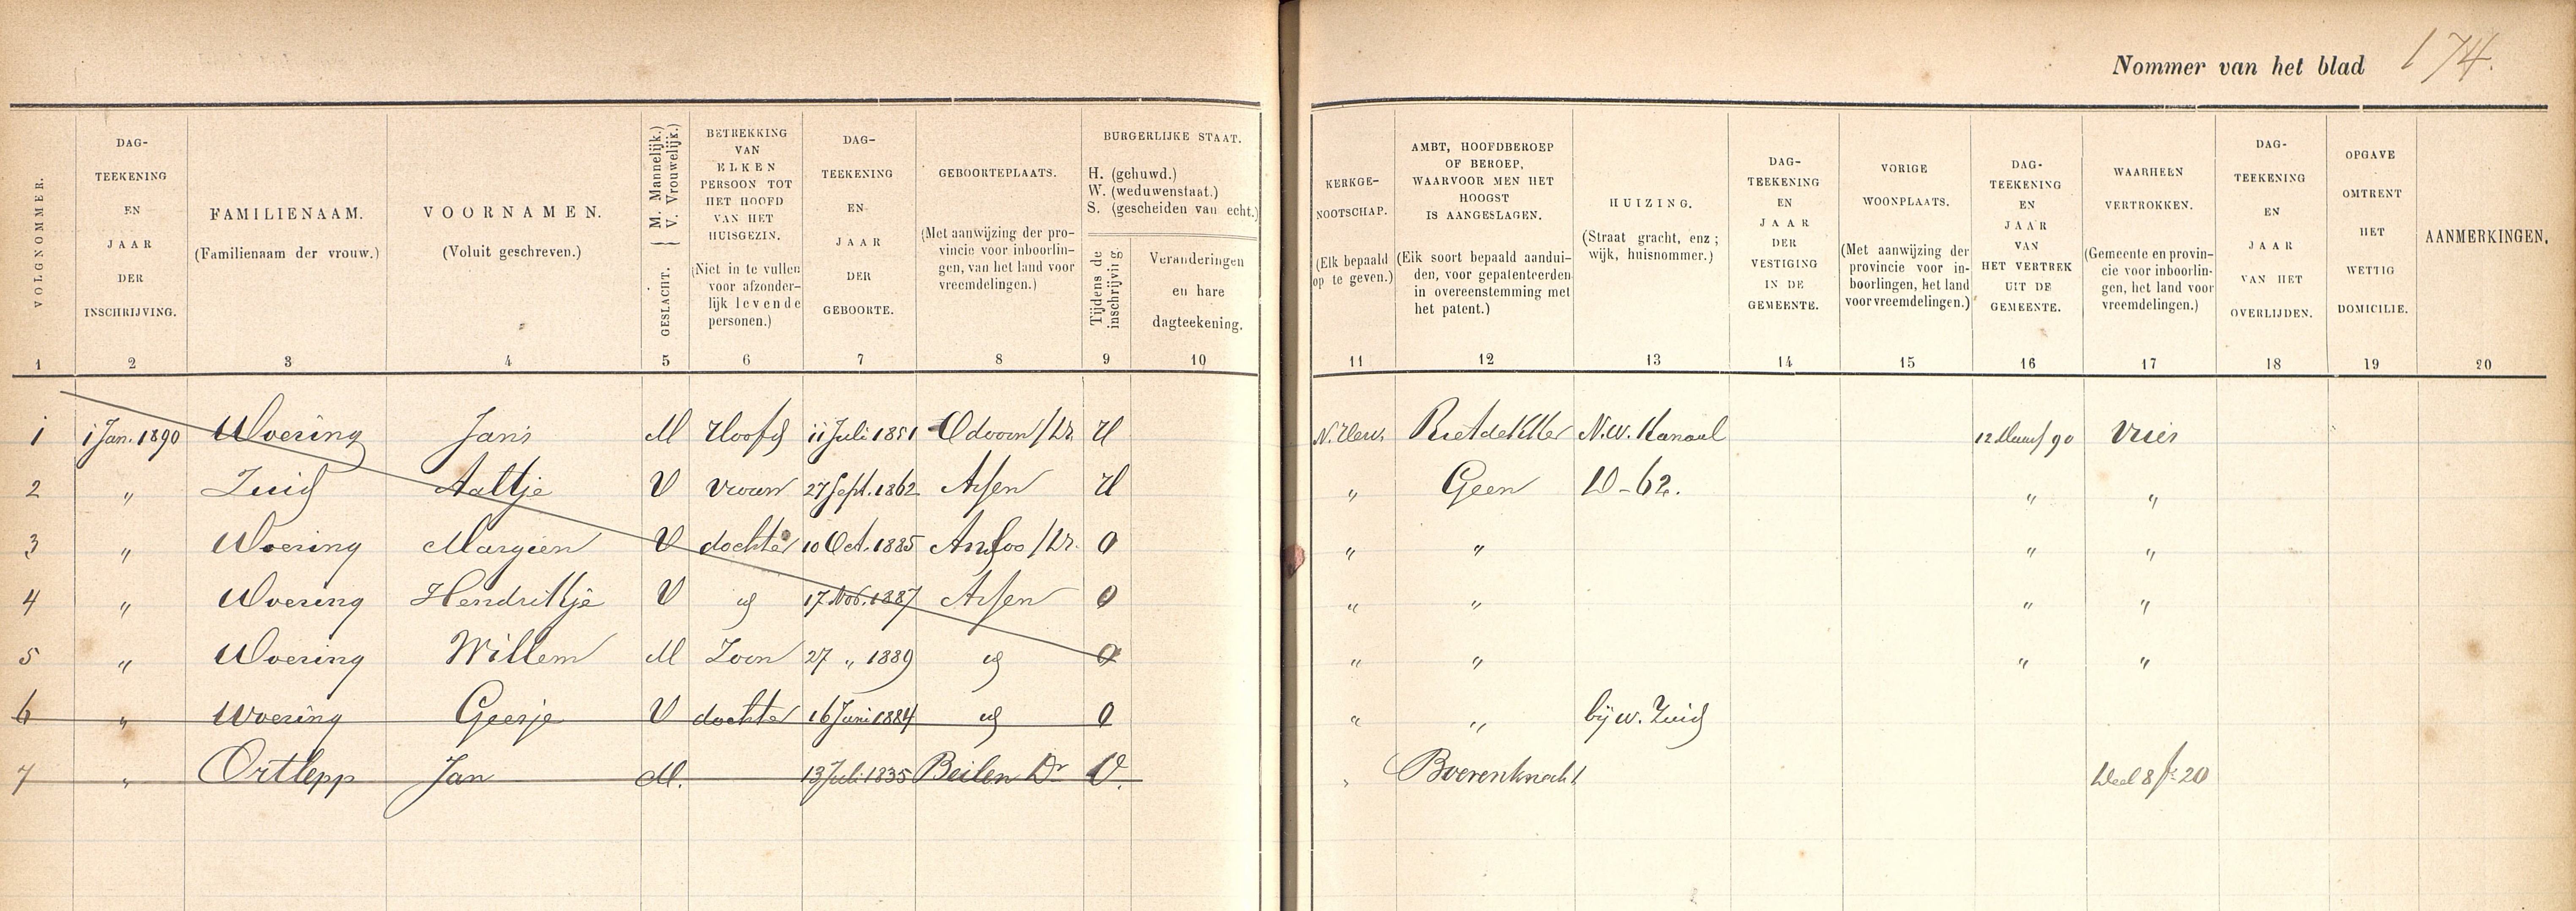 Nommer van het blad 174.
VOLGNOMMER.
DAG-
TEEKENING
EN
JAAR
DER
INSCHRIJVING.
FAMILIENAAM.
(Familienaam der vrouw.)
VOORNAMEN.
(Voluit geschreven.)
GESLACHT. { M. Mannelijk.) V. Vrouwelijk.)
BETREKKING
VAN
ELKEN
PERSOON TOT
HET HOOFD
VAN HET
HUISGEZIN.
(Niet in te vullen
voor afzonder-
lijk levende
personen.)
DAG-
TEEKENING
EN
JAAR
DER
GEBOORTE.
GEBOORTEPLAATS.
(Met aanwijzing der pro-
vincie voor inboorlin-
gen, van het land voor
vreemdelingen.)
BURGERLIJKE STAAT.
H. (gehuwd.)
W. (weduwenstaat.)
S. (gescheiden van echt.)
Tijdens de
inschrijving.
Veranderingen
en hare
dagteekening.
KERKGE-
NOOTSCHAP.
(Elk bepaald
op te geven.)
AMBT, HOOFDBEROEP
OF BEROEP,
WAARVOOR MEN HET
HOOGST
IS AANGESLAGEN.
(Elk soort bepaald aandui-
den, voor gepatenteerden
in overeenstemming met
het patent.)
HUIZING.
(Straat gracht, enz;
wijk, huisnommer.)
DAG-
TEEKENING
EN
JAAR
DER
VESTIGING
IN DE
GEMEENTE.
VORIGE
WOONPLAATS.
(Met aanwijzing der
provincie voor in-
boorlingen, het land
voor vreemdelingen.)
DAG-
TEEKENING
EN
JAAR
VAN
HET VERTREK
UIT DE
GEMEENTE.
WAARHEEN
VERTROKKEN.
(Gemeente en provin-
cie voor inboorlin-
gen, het land voor
vreemdelingen.)
DAG-
TEEKENING
EN
JAAR
VAN HET
OVERLIJDEN.
OPGAVE
OMTRENT
HET
WETTIG
DOMICILIE.
AANMERKINGEN.
1 2 3 4 5 6 7 8 9 10 11 12 13 14 15 16 17 18 19 20
1 1 Jan. 1890 Woering Jans M Hoofd 11 Juli 1851 Odoorn/Dr. H N. Herv. Rietdekker N.W. Kanaal 12 Maart 90 Vries
2 " Zuid Aaltje V vrouw 27 Sept. 1862 Assen H " Geen D-62. " "
3 " Woering Margien V dochter 10 Oct. 1885 Anloo/Dr. O " " " "
4 " Woering Hendrikje V id 17 Nov. 1887 Assen O " " " "
5 " Woering Willem M Zoon 27 " 1889 id O " " " "
6 " Woering Geesje V dochter 16 Juni 1884 id O " " bij w. Zuid
7 " Ortlepp Jan M. 13 Juli 1835 Beilen Dr O. " Boerenknecht Deel 8 fo 20